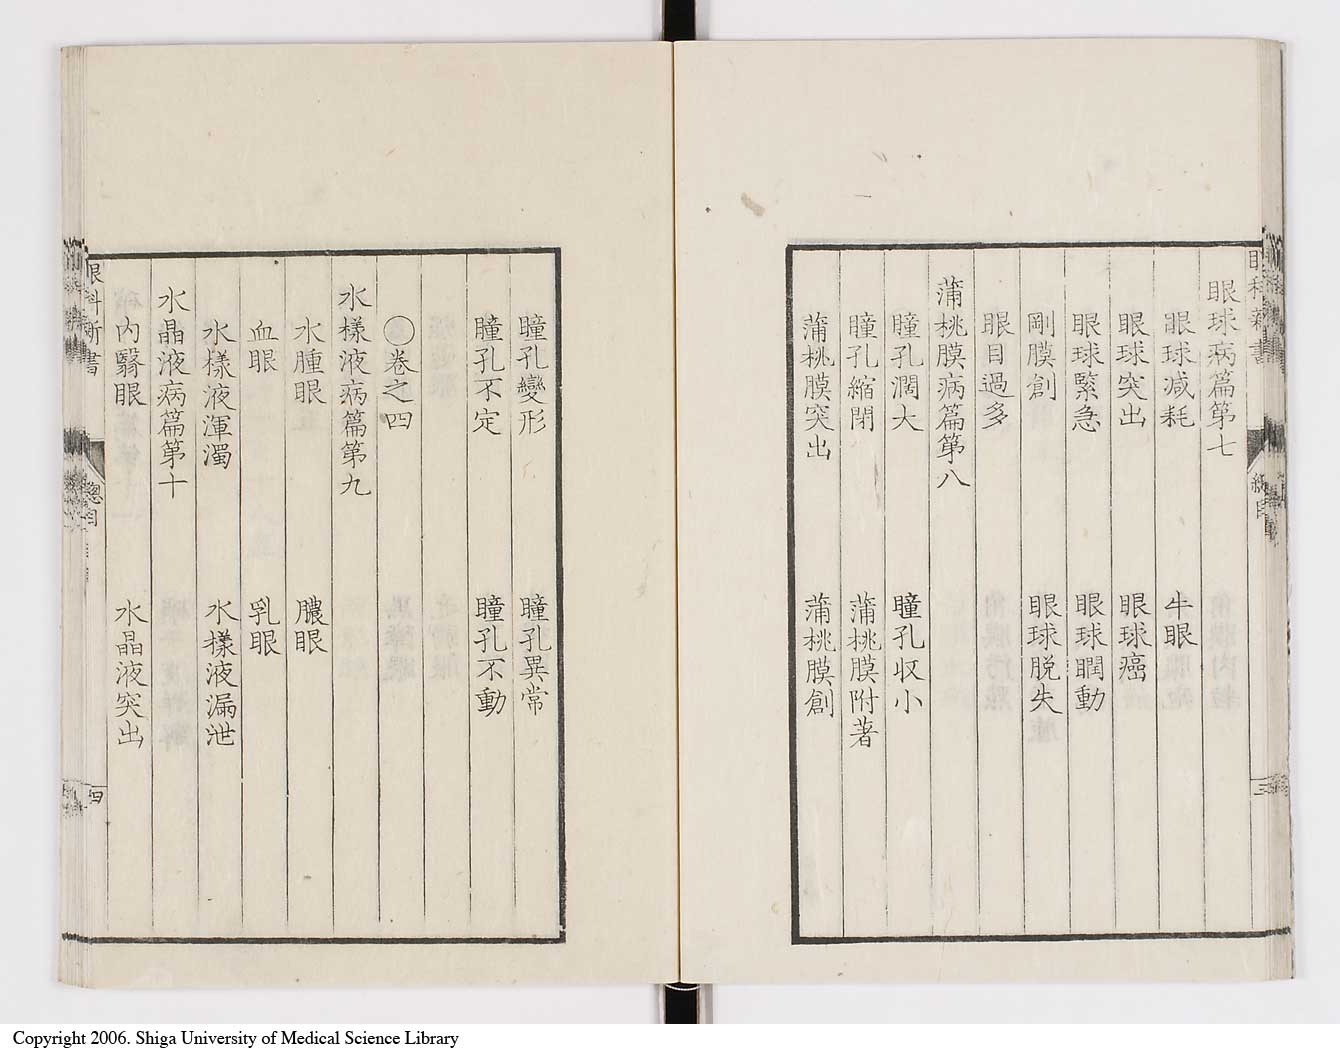 眼球病篇第七
眼球減耗　牛眼
眼球突出　眼球癌
眼球緊急　眼球瞤動
剛膜創　眼球脱失
眼目過多
蒲桃膜病篇第八
瞳孔濶大　瞳孔収小
瞳孔縮閉　蒲桃膜附著
蒲桃膜突出　蒲桃膜創
瞳孔變形　瞳孔異常
瞳孔不定　瞳孔不動
〇卷之四
水樣液病篇第九
水腫眼　膿眼
血眼　乳眼
水樣液渾濁　水樣液漏泄
水晶液病篇第十
內翳眼　水晶液突出
眼科新書　總目　四
Copyright 2006. Shiga University of Medical Science Library